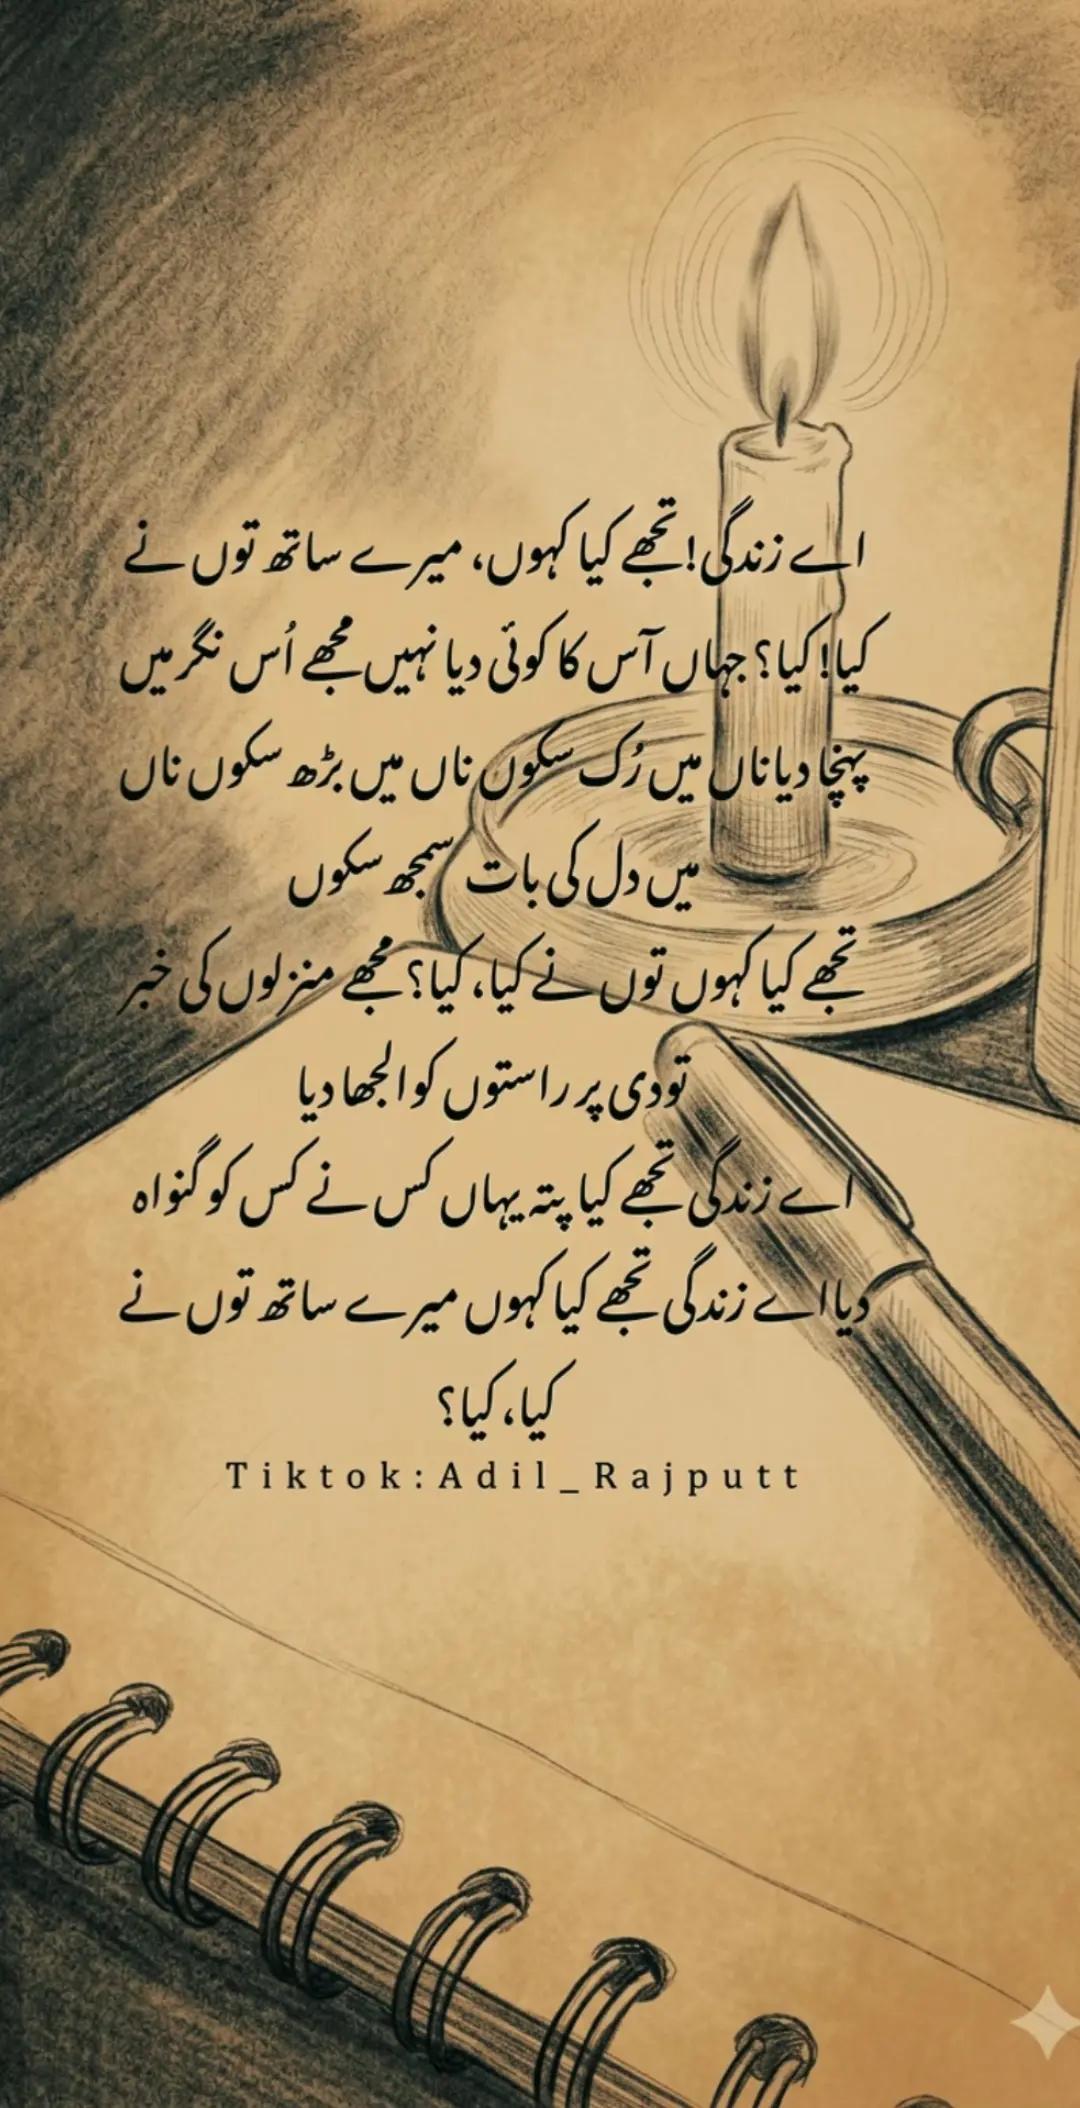 اے زندگی! تجھے کیا کہوں، میرے ساتھ توں نے
کیا! کیا؟ جہاں آس کا کوئی دیا نہیں مجھے اُس نگر میں
پہنچا دیا ناں میں رُک سکوں ناں میں بڑھ سکوں ناں
میں دل کی بات سمجھ سکوں
تجھے کیا کہوں توں نے کیا، کیا؟ مجھے منزلوں کی خبر
تو دی پر راستوں کو الجھا دیا
اے زندگی تجھے کیا پتہ یہاں کس نے کس کو گنواہ
دیا اے زندگی تجھے کیا کہوں میرے ساتھ توں نے
کیا، کیا؟
Tiktok:Adil_Rajputt